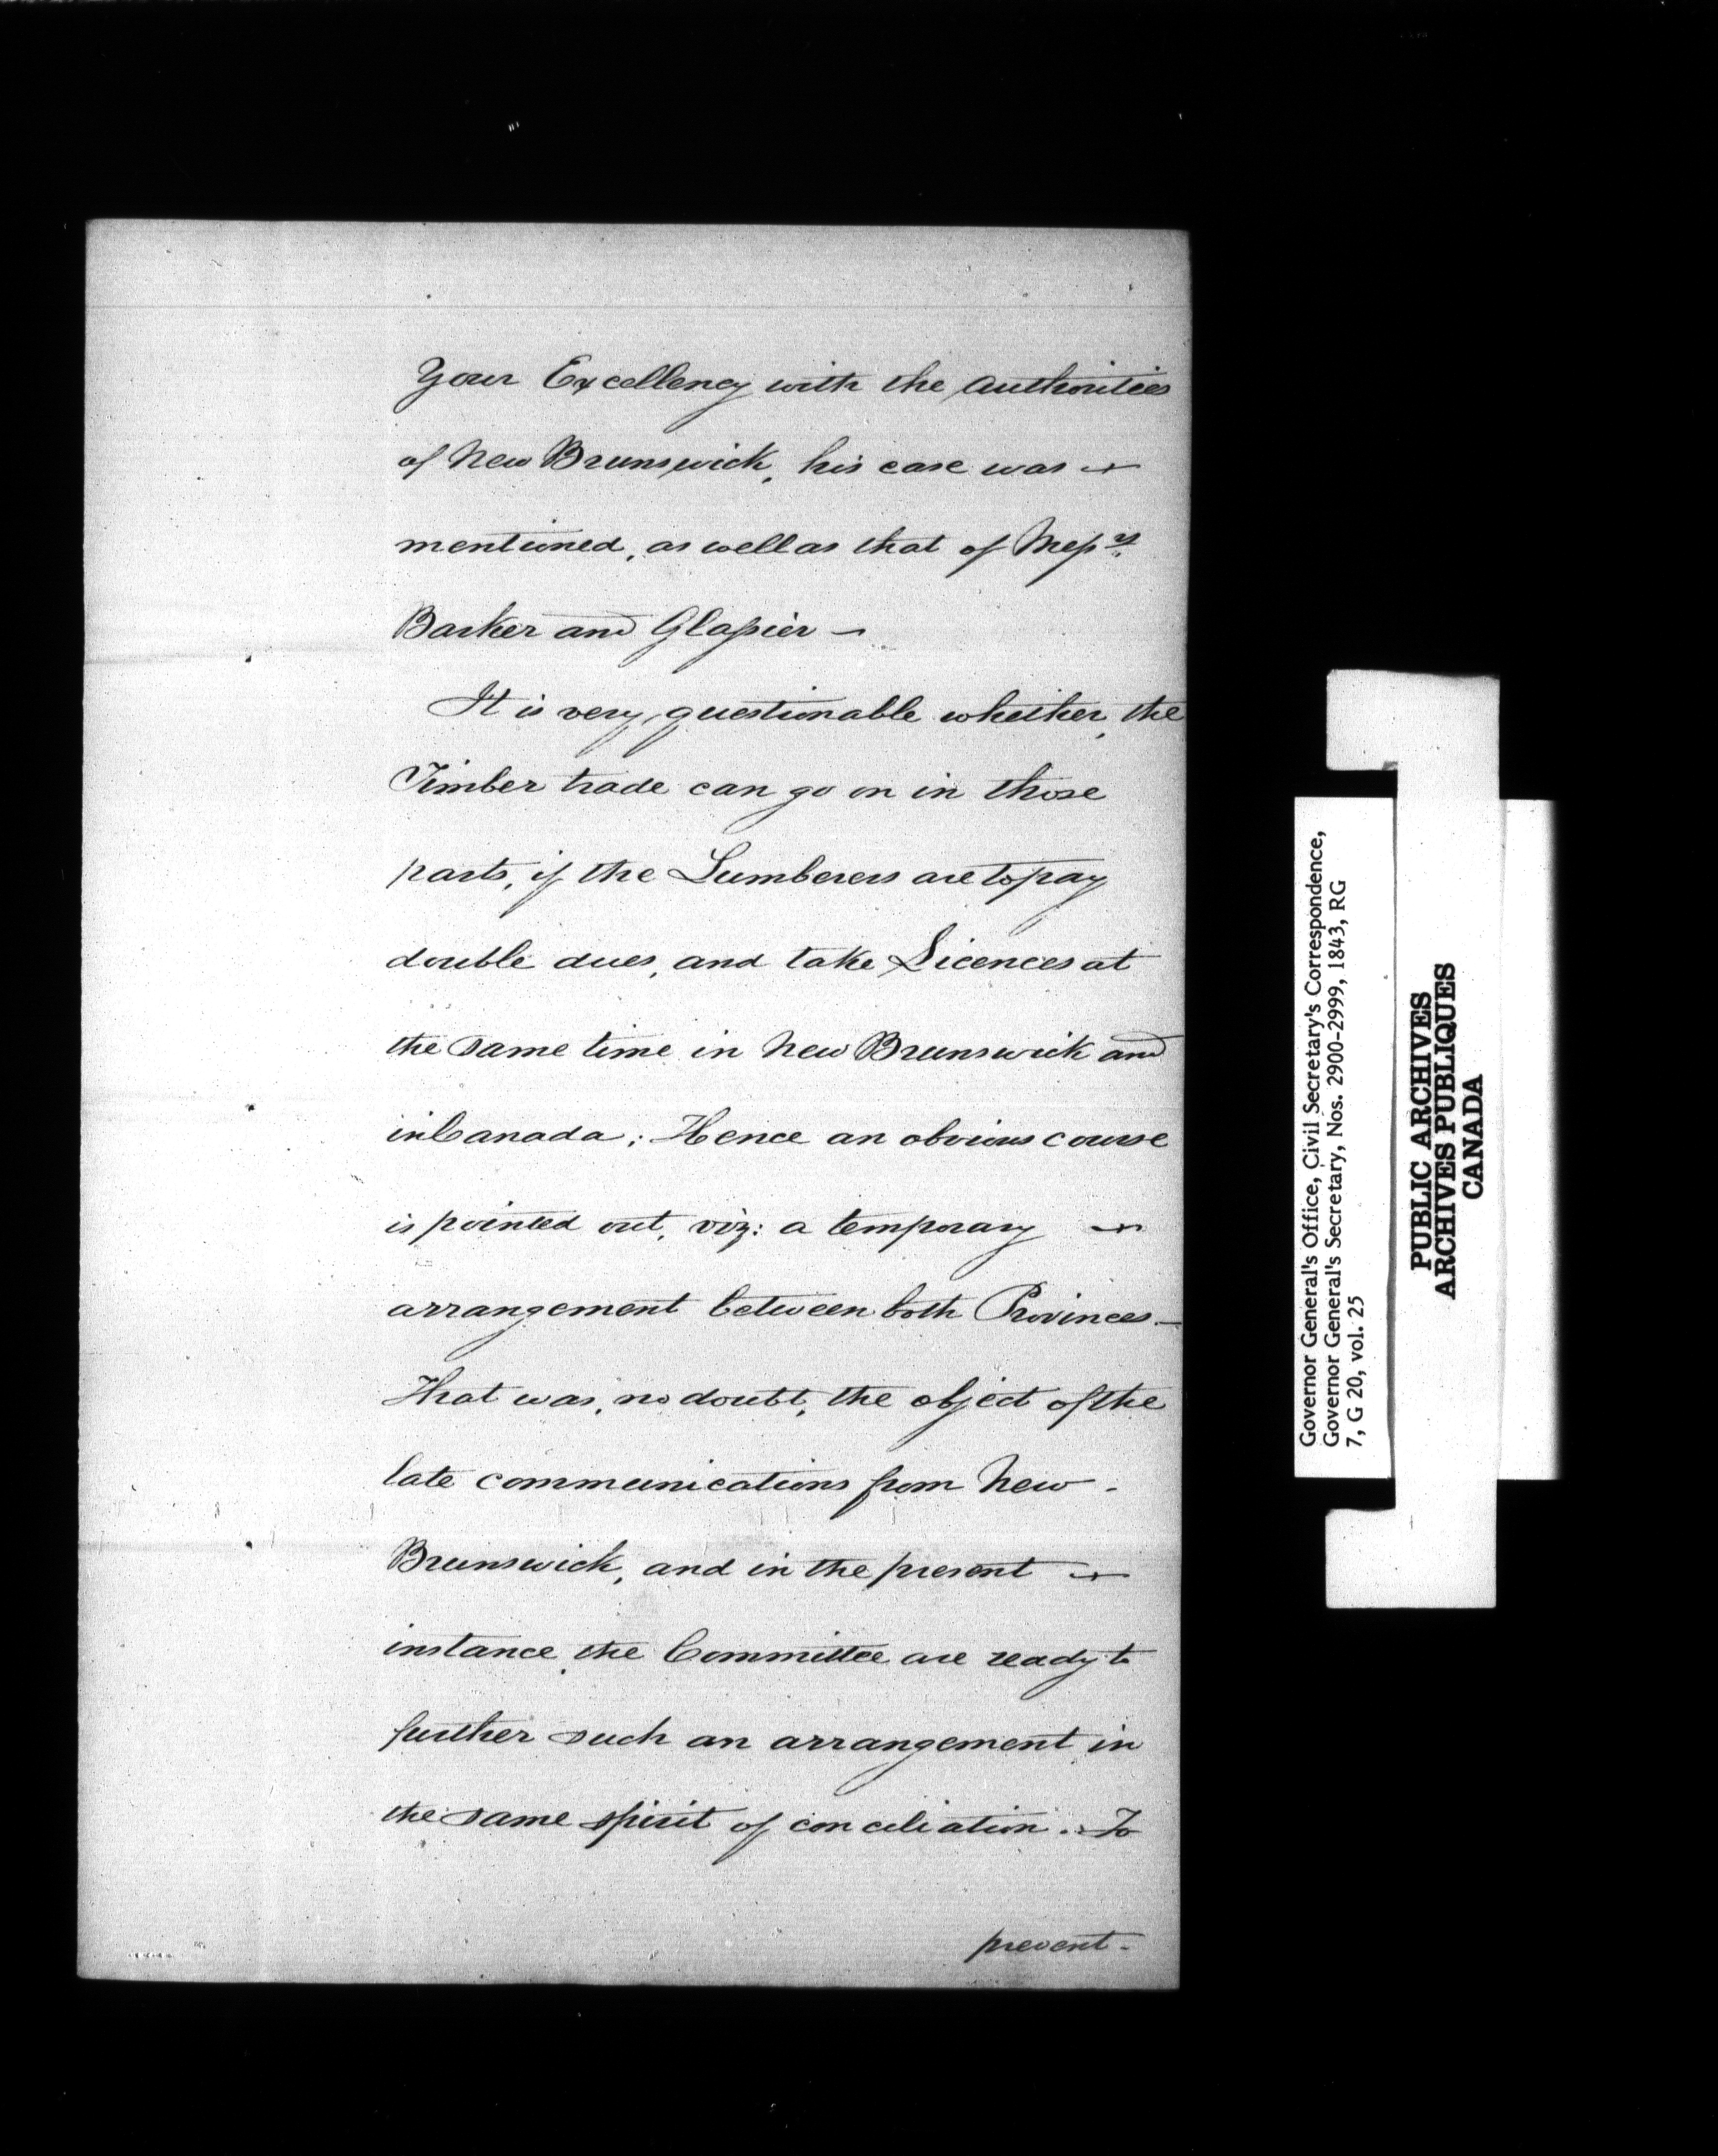 Your Excellency with the Authorities
of New Brunswick, his case was —
mentioned, as well as that of Messrs.
Barker and Glasier —
It is very questionable whether, the
Timber trade can go on in those
parts, if the Lumberers are to pay
double dues, and take Licences at
the same time in New Brunswick and
in Canada; Hence an obvious course
is pointed out, viz: a temporary —
arrangement between both Provinces.—
That was, no doubt, the object of the
late communications from New -
Brunswick, and in the present —
instance, the Committee are ready to
further such an arrangement in
the same spirit of conciliation. To
prevent -
Governor General's Office, Civil Secretary's Correspondence,
Governor General's Secretary, Nos. 2900-2999, 1843, RG
7, G 20, vol. 25
PUBLIC ARCHIVES
ARCHIVES PUBLIQUES
CANADA